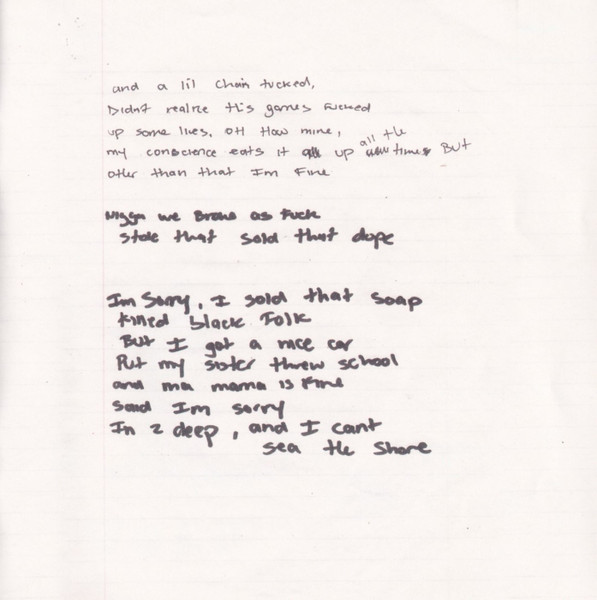 and a lil chain tucked,
Didnt realize this games Fucked
up some lives, other than mine,
my conscience eats it up all the times But
other than that Im Fine
Nigga we Broke as Fuck
stole that sold that dope
Im Sorry, I sold that soap
killed black Folk
But I got a nice car
Put my sister threw school
and ma mama is Fine
Said Im sorry
In 2 deep, and I cant
sea the Shore